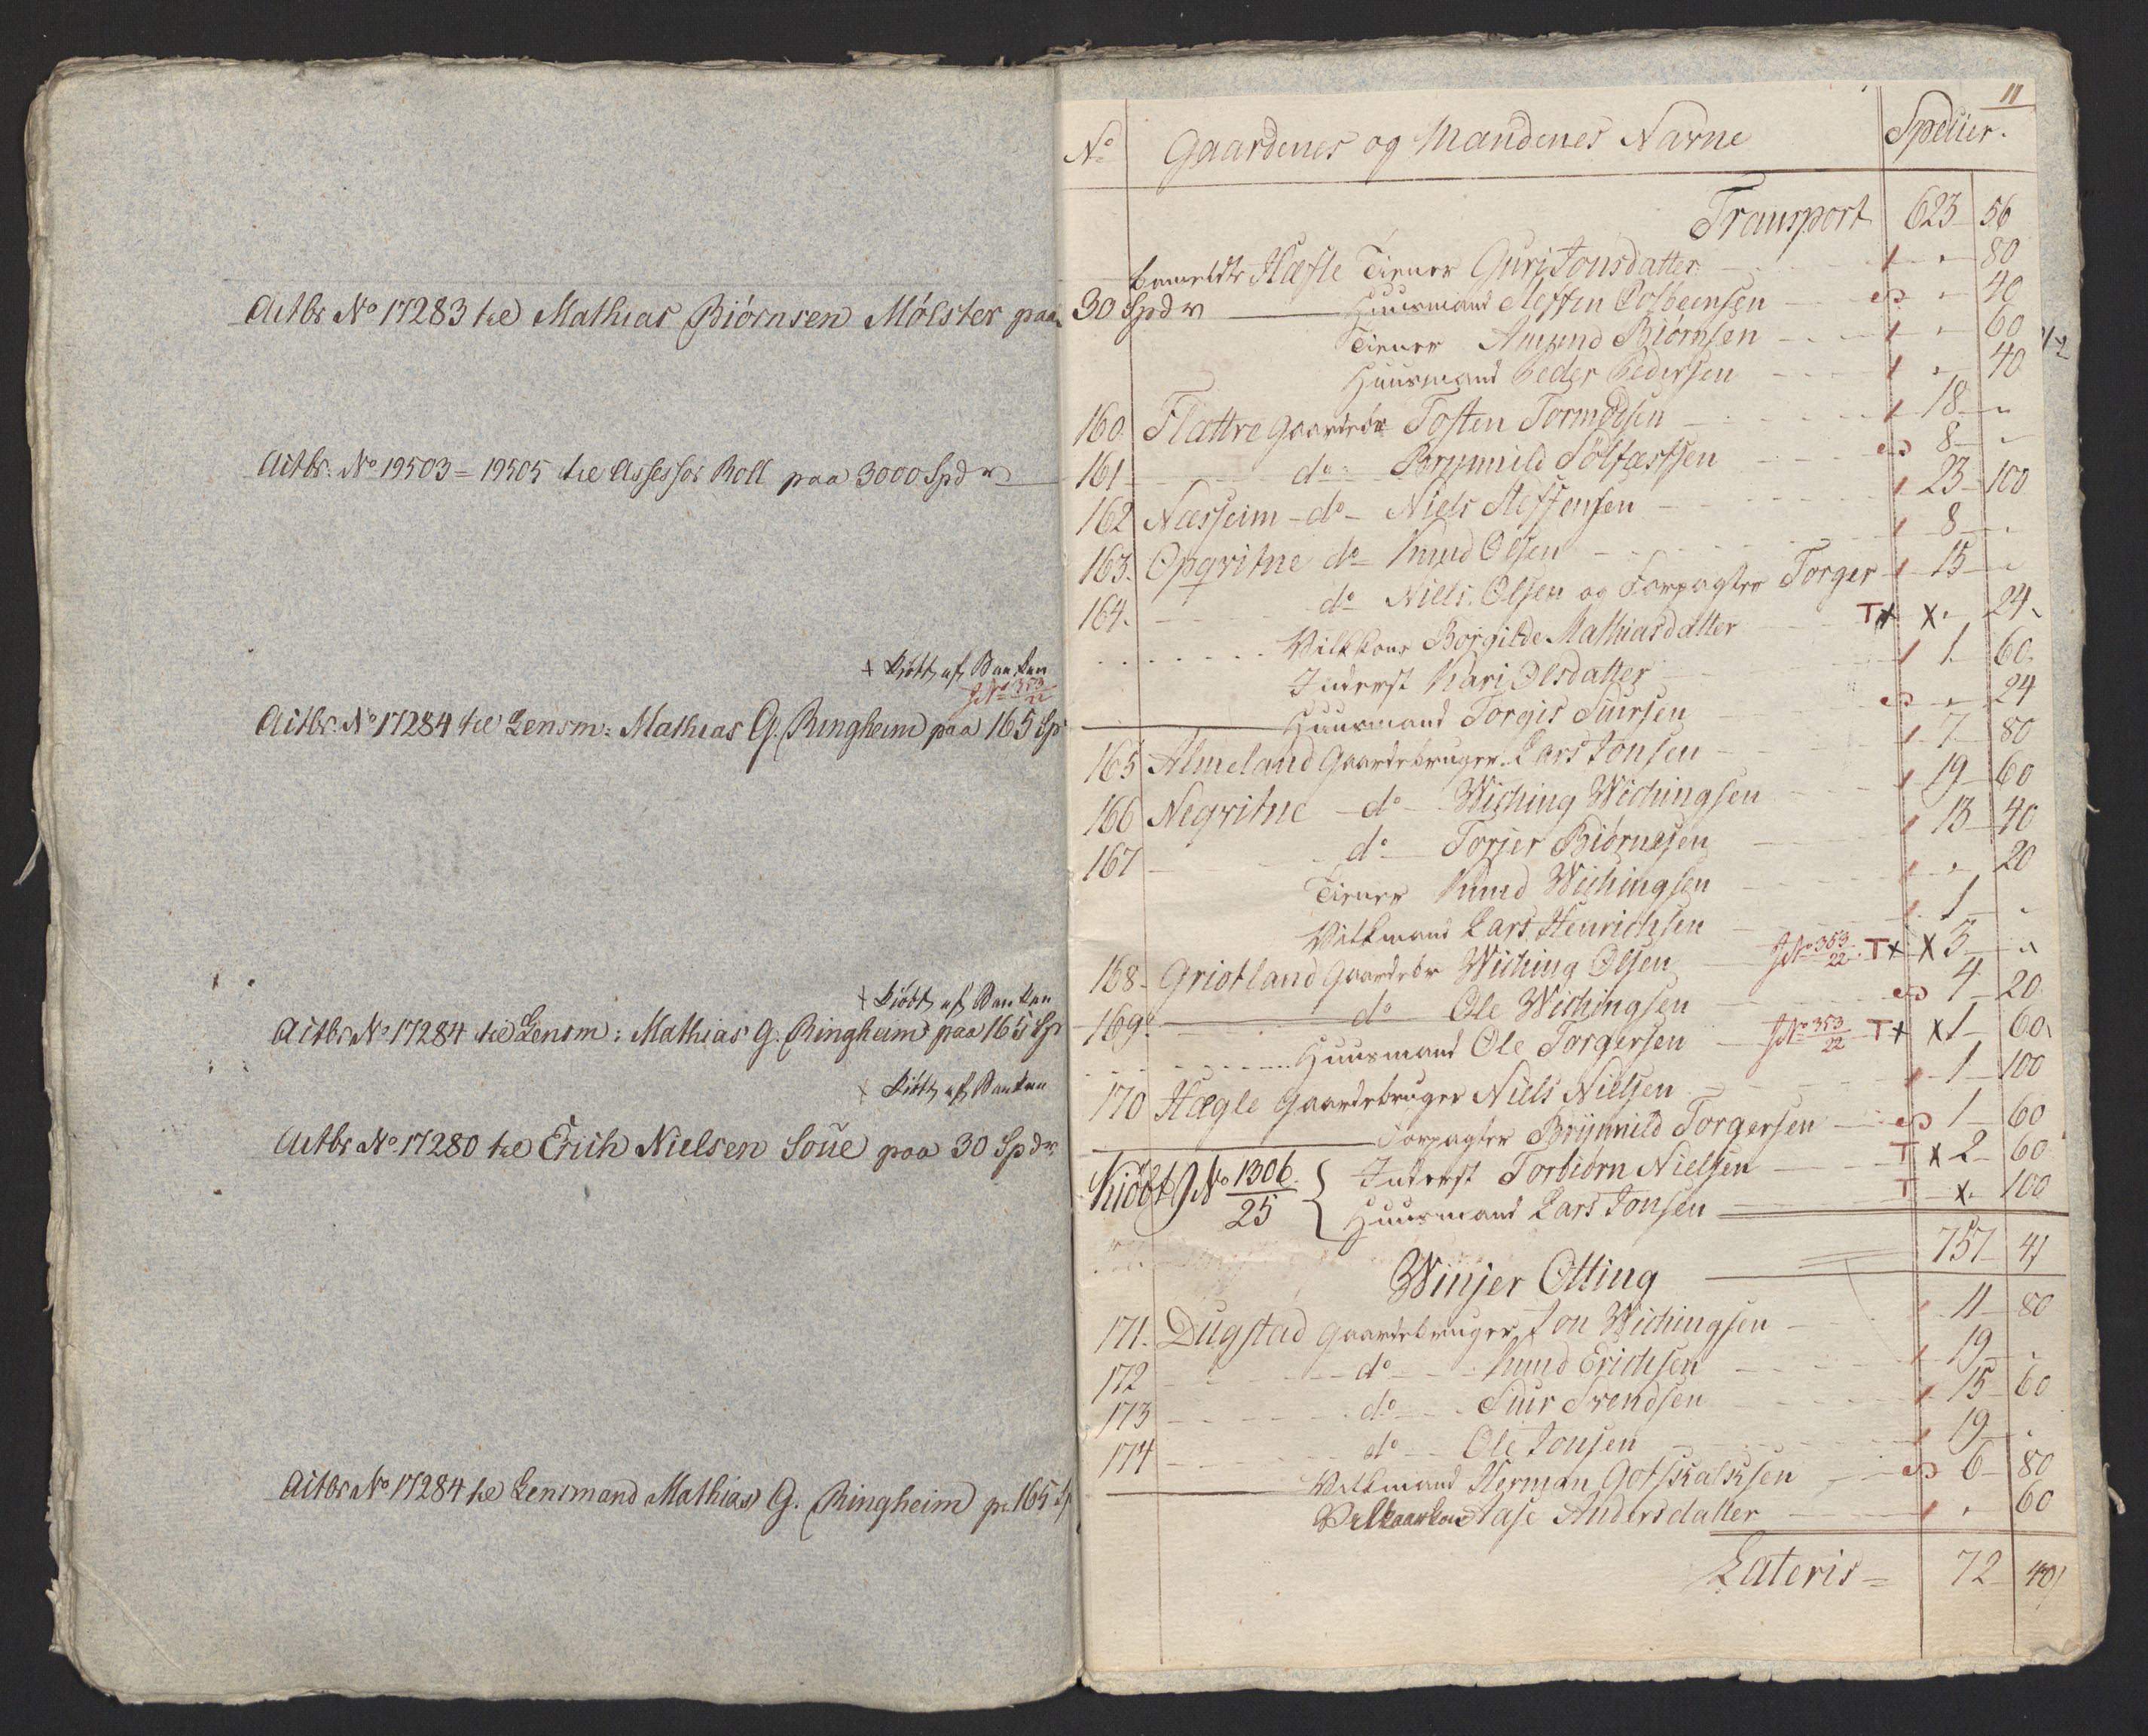 Actbr No 17283 til Mathias Biörnsen Mölster paa
Actbr. No 19503 = 19505 til Assessor Roll paa 3000 Spdr
+ Kiöbt af Banken
J No 353/22
Actbr. No 17284 til Lensm: Mathias G. Ringheim paa 165 Sp
+ Kiöbt af Banken
Actbr No 17284 til Lensm: Mathias G. Ringheim paa 165 Sp
+ Kiöbt af Banken
Actbr No. 17280 til Erich Nielsen Soüe paa 30 Spdr
Actbr No 17284 til Lensmand Mathias G. Ringheim p. 165 Sp
11
No Gaardenes og Mandenes Navne Spesier.
Transport 623 56
bemeldte Hæfle Tiener Guri Jonsdatter 80
30 Spdr Huusmand Steffen Colbeensen 40
Tiener Amund Biörnsen 60
Huusmand Peder Pedersen 40
160. Flattre Gaardebr Tosten Tormodsen 18
161 do Brynnild Solfæstsen 8
162 Næsheim do Niels Steffensen 23 100
163. Opqvitne do Knud Olsen 8
164. do Niels Olsen og Forpagter Torger 15
Vilkkone Borgilde Mathiasdatter T+ X 24
Inderst Kari Olsdatter 1 60
Huusmand Torgis Siursen 24
165 Almeland Gaardebruger Lars Jonsen 7 80
166 Neqvitne do Wiching Wichingsen 19 60
167 do Torjer Biörnesen 13 40
Tiener Knud Wichingsen 20
Vilkmand Lars Henrichsen 1
168 Griotland Gaardebr Wiching Olsen J No 353/22 T+ X 3
169. do Ole Wichingsen 4 20
Huusmand Ole Torgersen J No 353/22 T+ X 1 60
170 Hægle Gaardebruger Niels Nielsen 1 100
Forpagter Brynnild Torgersen 1 60
Kiöbt J No 1306/25 { Inderst Torbiörn Nielsen T X 2 60
Huusmand Lars Jonsen T X 100
757 41
Winjer Otting
171. Dugstad Gaardebruger Jon Wichingsen 11 80
172 do Knud Erichsen 19
173 do Siur Svendsen 15 60
174 do Ole Jonsen 19
Vilkmand Herman Gotskalksen 6 80
Vilkaarkone Aase Andersdatter 60
Lateris = 72 40